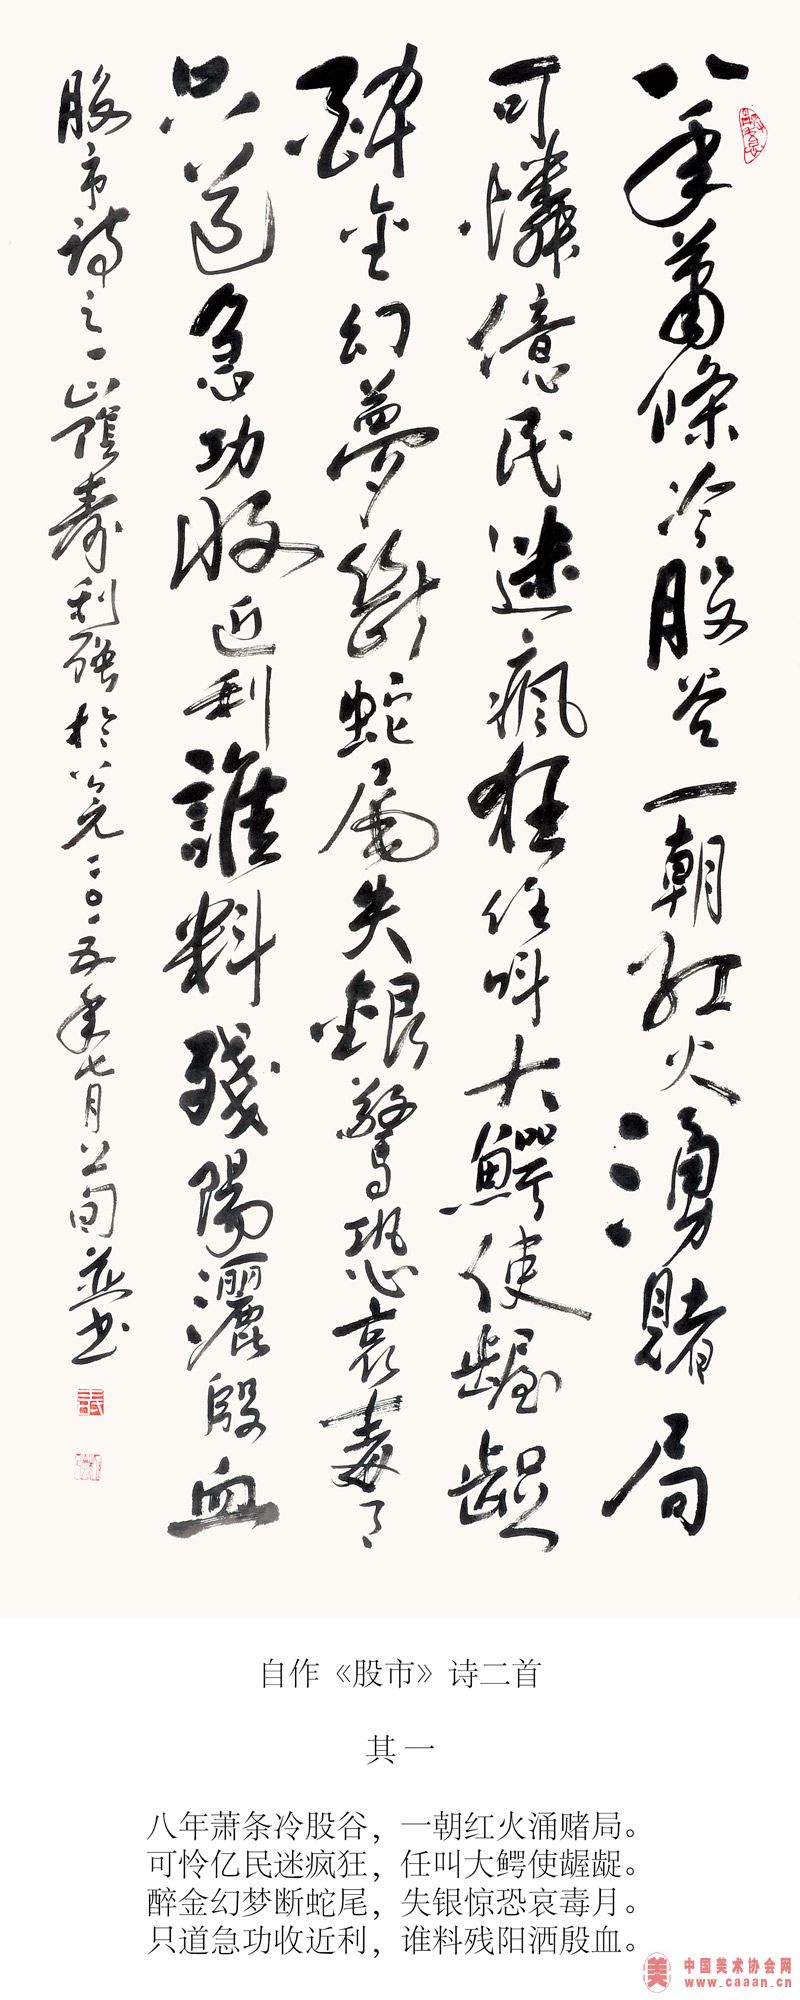 八年蕭條冷股谷一朝紅火湧賭局
可憐億民迷瘋狂任叫大鰐使齷齪
醉金幻夢斷蛇尾失銀驚恐哀毒月
只道急功收近利誰料殘陽灑殷血
股市詩之一山陰壽利強於公元二〇一五年七月上旬並书
自作《股市》诗二首
其一
八年萧条冷股谷，一朝红火涌赌局。
可怜亿民迷疯狂，任叫大鳄使龌龊。
醉金幻梦断蛇尾，失银惊恐哀毒月。
只道急功收近利，谁料残阳洒殷血。
美 中国美术协会网
www.caaan.cn